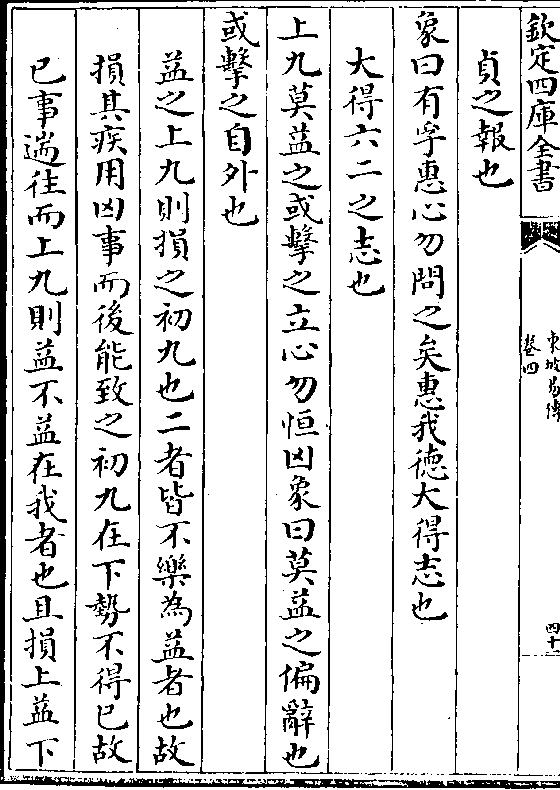 欽定四庫全書
東坡易傳
卷四
四十
貞之報也
象曰有孚惠心勿問之矣惠我德大得志也
大得六二之志也
上九莫益之或擊之立心勿恒凶象曰莫益之偏辭也
或擊之自外也
益之上九則損之初九也二者皆不樂為益者也故
損其疾用凶事而後能致之初九在下勢不得已故
已事遄往而上九則益不益在我者也且損上益下